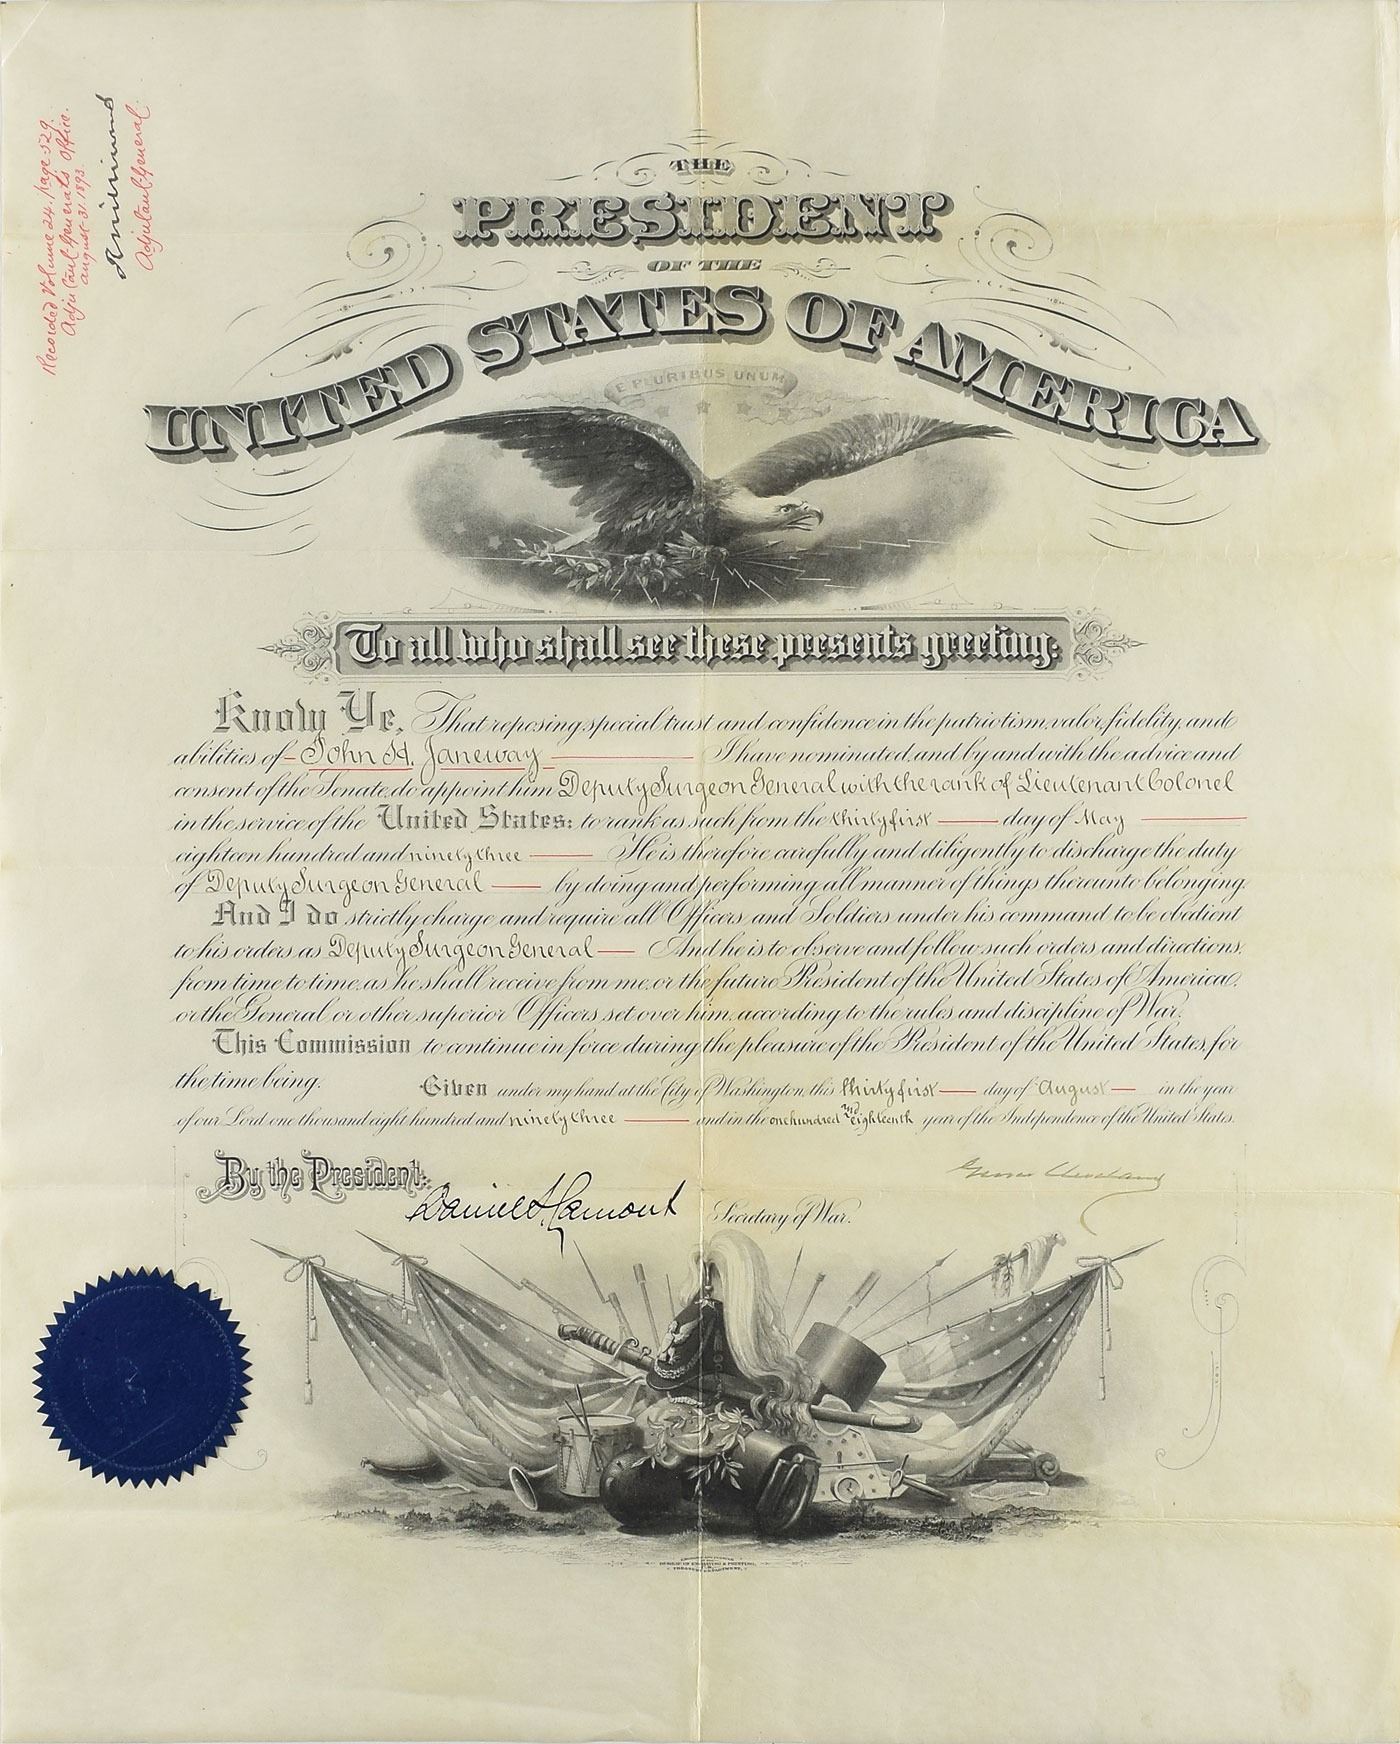 Recorded Volume 24. Page 529.
Adjutant General's Office.
August 31. 1893.
Adjutant General.
THE
PRESIDENT
OF THE
UNITED STATES OF AMERICA
E PLURIBUS UNUM
To all who shall see these presents greeting:
Know Ye, That reposing special trust and confidence in the patriotism, valor, fidelity, and
abilities of John H. Janeway I have nominated, and by and with the advice and
consent of the Senate, do appoint him Deputy Surgeon General with the rank of Lieutenant Colonel
in the service of the United States: to rank as such from the thirty first day of May
eighteen hundred and ninety three He is therefore carefully and diligently to discharge the duty
of Deputy Surgeon General by doing and performing all manner of things thereunto belonging.
And I do strictly charge and require all Officers and Soldiers under his command to be obedient
to his orders as Deputy Surgeon General And he is to observe and follow such orders and directions,
from time to time, as he shall receive from me, or the future President of the United States of America,
or the General or other superior Officers set over him, according to the rules and discipline of War.
This Commission to continue in force during the pleasure of the President of the United States, for
the time being. Given under my hand at the City of Washington, this thirty first day of August in the year
of our Lord one thousand eight hundred and ninety three and in the one hundred and eighteenth year of the Independence of the United States.
Grover Cleveland
By the President:
Daniel S. Lamont Secretary of War.
BUREAU OF ENGRAVING & PRINTING,
TREASURY DEPARTMENT.